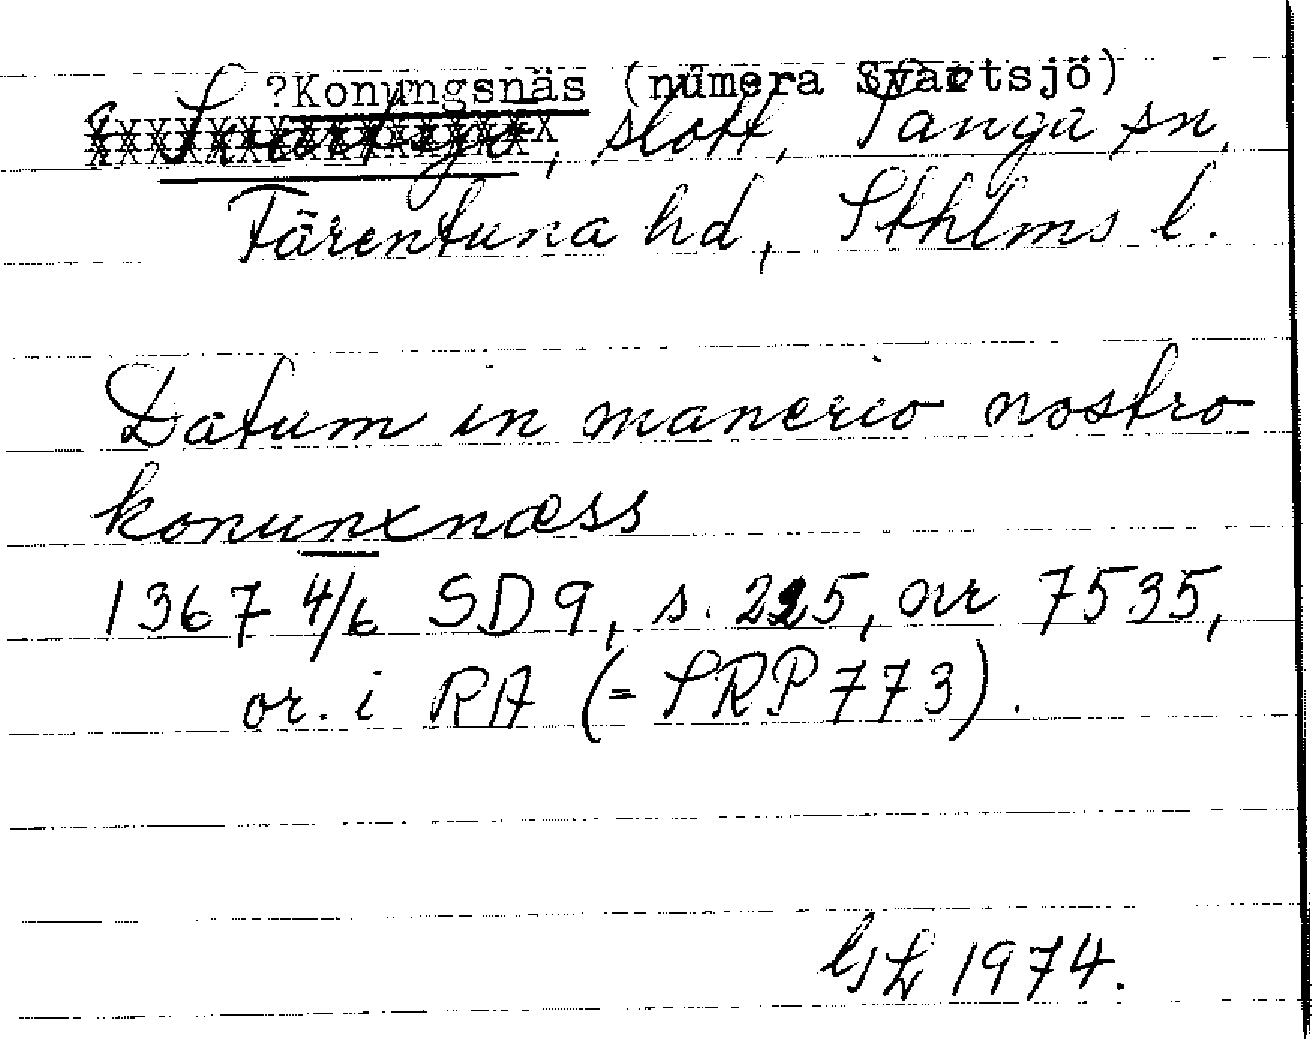 ?Konungsnäs (numera Svartsjö)
? Svartsjö, slott, Sånga sn,
Färentuna hd, Sthlms l.
Datum in manerio nostro
konunxnæss
1367 4/6 SD 9, s. 225, nr 7535,
or. i RA (= SRP 773).
GL 1974.